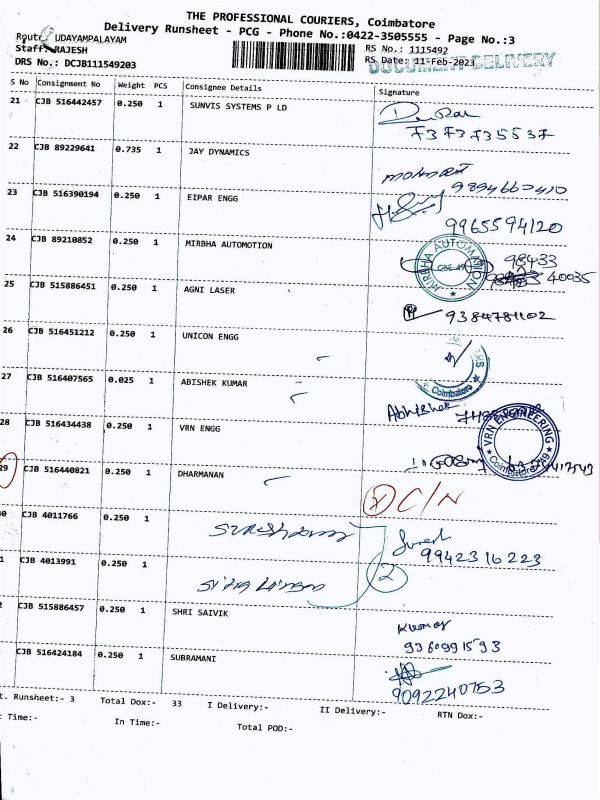 THE PROFESSIONAL COURIERS, Coimbatore
Delivery Runsheet - PCG - Phone No.:0422-3505555 - Page No.:3
Route: UDAYAMPALAYAM
Staff: RAJESH
DRS No.: DCJB111549203
RS No.: 1115492
RS Date: 11-Feb-2023
DOCUMENT DELIVERY
S No Consignment No Weight PCS Consignee Details Signature
21 CJB 516442457 0.250 1 SUNVIS SYSTEMS P LD
7373735537
22 CJB 89229641 0.735 1 JAY DYNAMICS
9894660410
23 CJB 516390194 0.250 1 EIPAR ENGG
9965594120
24 CJB 89210852 0.250 1 MIRBHA AUTOMOTION
MIRBHA AUTOMATION
CBE-49
98433
40035
25 CJB 515886451 0.250 1 AGNI LASER
9384781102
26 CJB 516451212 0.250 1 UNICON ENGG
Coimbatore
27 CJB 516407565 0.025 1 ABISHEK KUMAR
Abhishek
28 CJB 516434438 0.250 1 VRN ENGG
VRN ENGINEERING
Coimbatore
29 CJB 516440821 0.250 1 DHARMANAN
C/N
0 CJB 4011766 0.250 1
Suresh
9942316223
1 CJB 4013991 0.250 1
2
CJB 515886457 0.250 1 SHRI SAIVIK
Kumar
9360991593
CJB 516424184 0.250 1 SUBRAMANI
9092240753
t. Runsheet:- 3 Total Dox:- 33 I Delivery:- II Delivery:- RTN Dox:-
t Time:- In Time:- Total POD:-